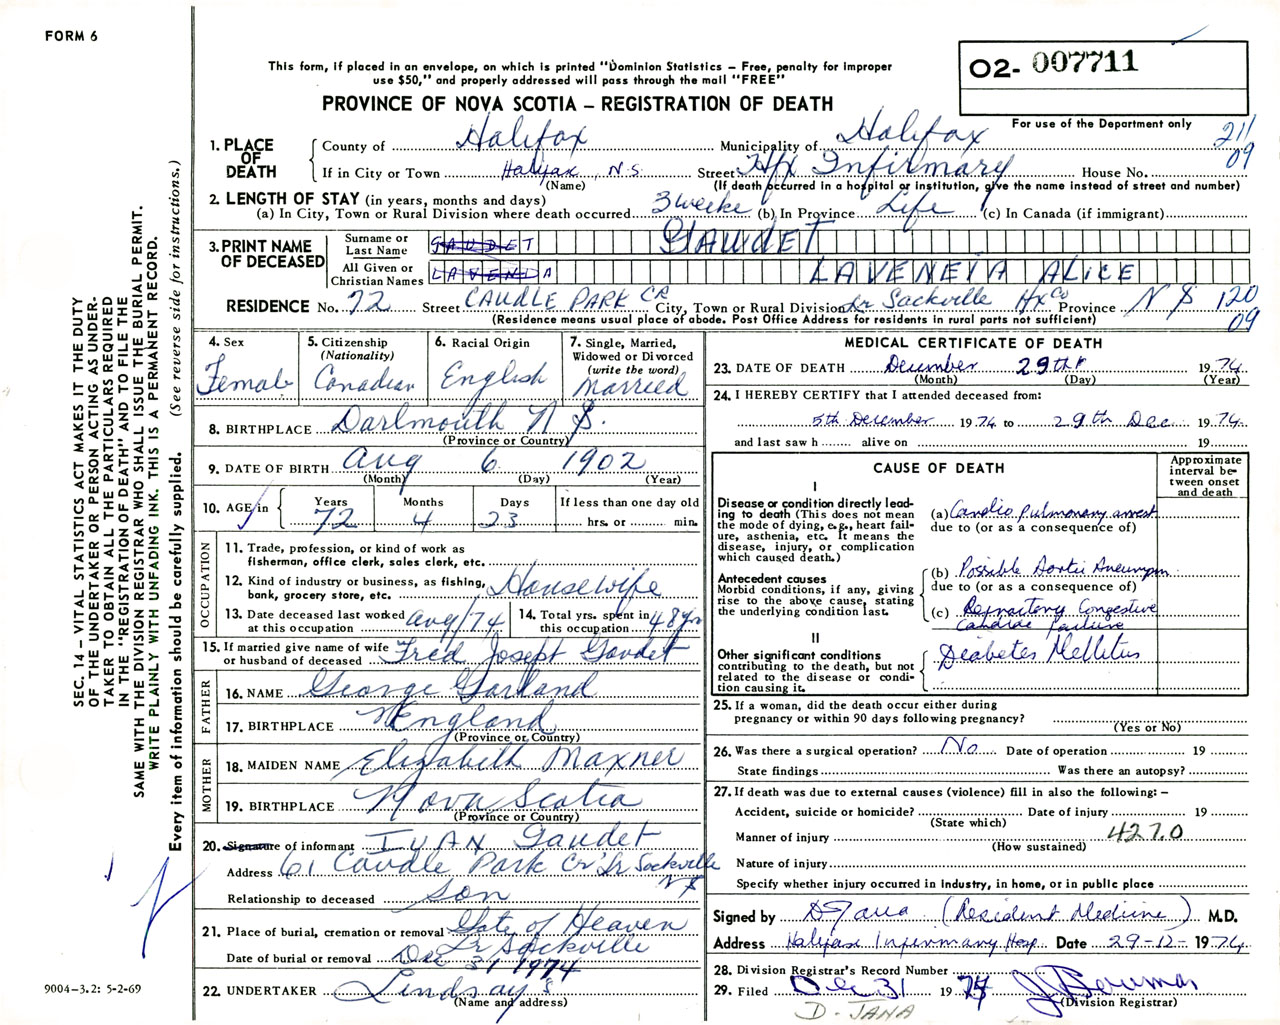 FORM 6
This form, if placed in an envelope, on which is printed "Dominion Statistics – Free, penalty for improper
use $50," and properly addressed will pass through the mail "FREE"
O2- 007711
PROVINCE OF NOVA SCOTIA – REGISTRATION OF DEATH
For use of the Department only
211
09
1. PLACE OF DEATH
County of Halifax Municipality of Halifax
If in City or Town Halifax, N.S. Street Hfx Infirmary House No.
(Name) (If death occurred in a hospital or institution, give the name instead of street and number)
2. LENGTH OF STAY (in years, months and days)
(a) In City, Town or Rural Division where death occurred 3 weeke (b) In Province Life (c) In Canada (if immigrant)
3. PRINT NAME OF DECEASED
Surname or Last Name GAUDET GAUDET
All Given or Christian Names LAVENDA LAVENEIA ALICE
RESIDENCE No. 72 Street CAUDLE PARK CR City, Town or Rural Division Lr Sackville Hx Co Province N S 120
09
(Residence means usual place of abode. Post Office Address for residents in rural parts not sufficient)
4. Sex Female
5. Citizenship (Nationality) Canadian
6. Racial Origin English
7. Single, Married, Widowed or Divorced (write the word) Married
8. BIRTHPLACE Dartmouth N S.
(Province or Country)
9. DATE OF BIRTH Aug 6 1902
(Month) (Day) (Year)
10. AGE in Years 72 Months 4 Days 23 If less than one day old hrs. or min.
OCCUPATION
11. Trade, profession, or kind of work as
fisherman, office clerk, sales clerk, etc.
12. Kind of industry or business, as fishing,
bank, grocery store, etc. Housewife
13. Date deceased last worked
at this occupation Aug/74
14. Total yrs. spent in
this occupation 48 yrs
15. If married give name of wife
or husband of deceased Fred Joseph Gaudet
FATHER
16. NAME George Garland
17. BIRTHPLACE England
(Province or Country)
MOTHER
18. MAIDEN NAME Elizabeth Maxner
19. BIRTHPLACE Nova Scotia
(Province or Country)
20. Signature of informant IVAN Gaudet
Address 61 Caudle Park Cr Lr Sackville
NS
Relationship to deceased son
21. Place of burial, cremation or removal Gate of Heaven
Lr Sackville
Date of burial or removal Dec 31 1974
22. UNDERTAKER Lindsay's
(Name and address)
MEDICAL CERTIFICATE OF DEATH
23. DATE OF DEATH December 29th 19 74
(Month) (Day) (Year)
24. I HEREBY CERTIFY that I attended deceased from:
5th December 19 74 to 29th Dec 19 74
and last saw h alive on 19
CAUSE OF DEATH
Approximate interval between onset and death
I
Disease or condition directly leading to death (This does not mean the mode of dying, e.g., heart failure, asthenia, etc. It means the disease, injury, or complication which caused death.)
(a) Cardio Pulmonary arrest
due to (or as a consequence of)
Antecedent causes
Morbid conditions, if any, giving rise to the above cause, stating the underlying condition last.
(b) Possible Aortic Aneurysm
due to (or as a consequence of)
(c) Refractory Congestive
Cardiac failure
II
Other significant conditions
contributing to the death, but not related to the disease or condition causing it.
Diabetes Mellitus
25. If a woman, did the death occur either during
pregnancy or within 90 days following pregnancy?
(Yes or No)
26. Was there a surgical operation? No Date of operation 19
State findings Was there an autopsy?
27. If death was due to external causes (violence) fill in also the following: –
Accident, suicide or homicide? Date of injury 19
(State which)
Manner of injury 427.0
(How sustained)
Nature of injury
Specify whether injury occurred in industry, in home, or in public place
Signed by D Jana (Resident Medicine) M.D.
Address Halifax Infirmary Hosp. Date 29-12- 19 74
28. Division Registrar's Record Number
29. Filed Dec 31 19 74
(Division Registrar)
D. JANA
SEC. 14 – VITAL STATISTICS ACT MAKES IT THE DUTY
OF THE UNDERTAKER OR PERSON ACTING AS UNDER-
TAKER TO OBTAIN ALL THE PARTICULARS REQUIRED
IN THE "REGISTRATION OF DEATH" AND TO FILE THE
SAME WITH THE DIVISION REGISTRAR WHO SHALL ISSUE THE BURIAL PERMIT.
WRITE PLAINLY WITH UNFADING INK. THIS IS A PERMANENT RECORD.
Every item of information should be carefully supplied. (See reverse side for instructions.)
9004-3.2: 5-2-69